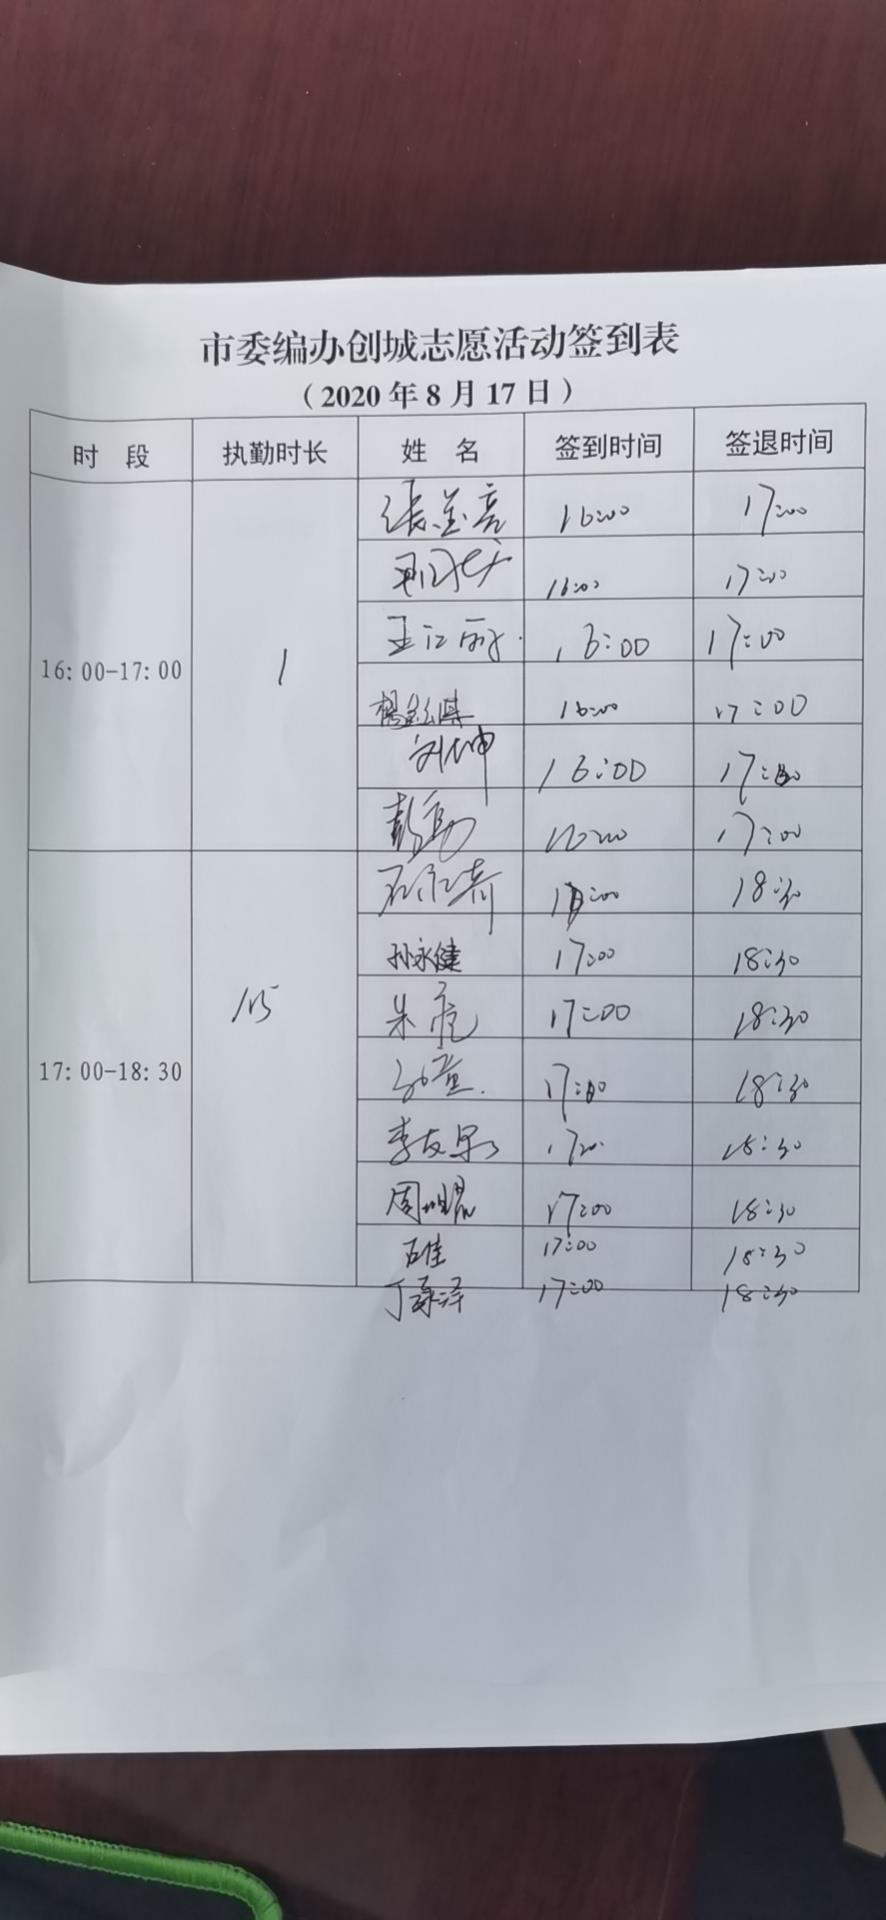 市委编办创城志愿活动签到表
（2020年8月17日）
时 段 执勤时长 姓 名 签到时间 签退时间
张金亮 16:00 17:00
16:00 17:00
王江丽 16:00 17:00
16:00-17:00 1
杨 16:00 17:00
刘坤 16:00 17:00
彭勇 16:00 17:00
石 17:00 18:30
孙永健 17:00 18:30
1.5
朱 17:00 18:30
17:00-18:30
17:00 18:30
李友 17:00 18:30
周 17:00 18:30
石佳 17:00 18:30
丁禄泽 17:00 18:30